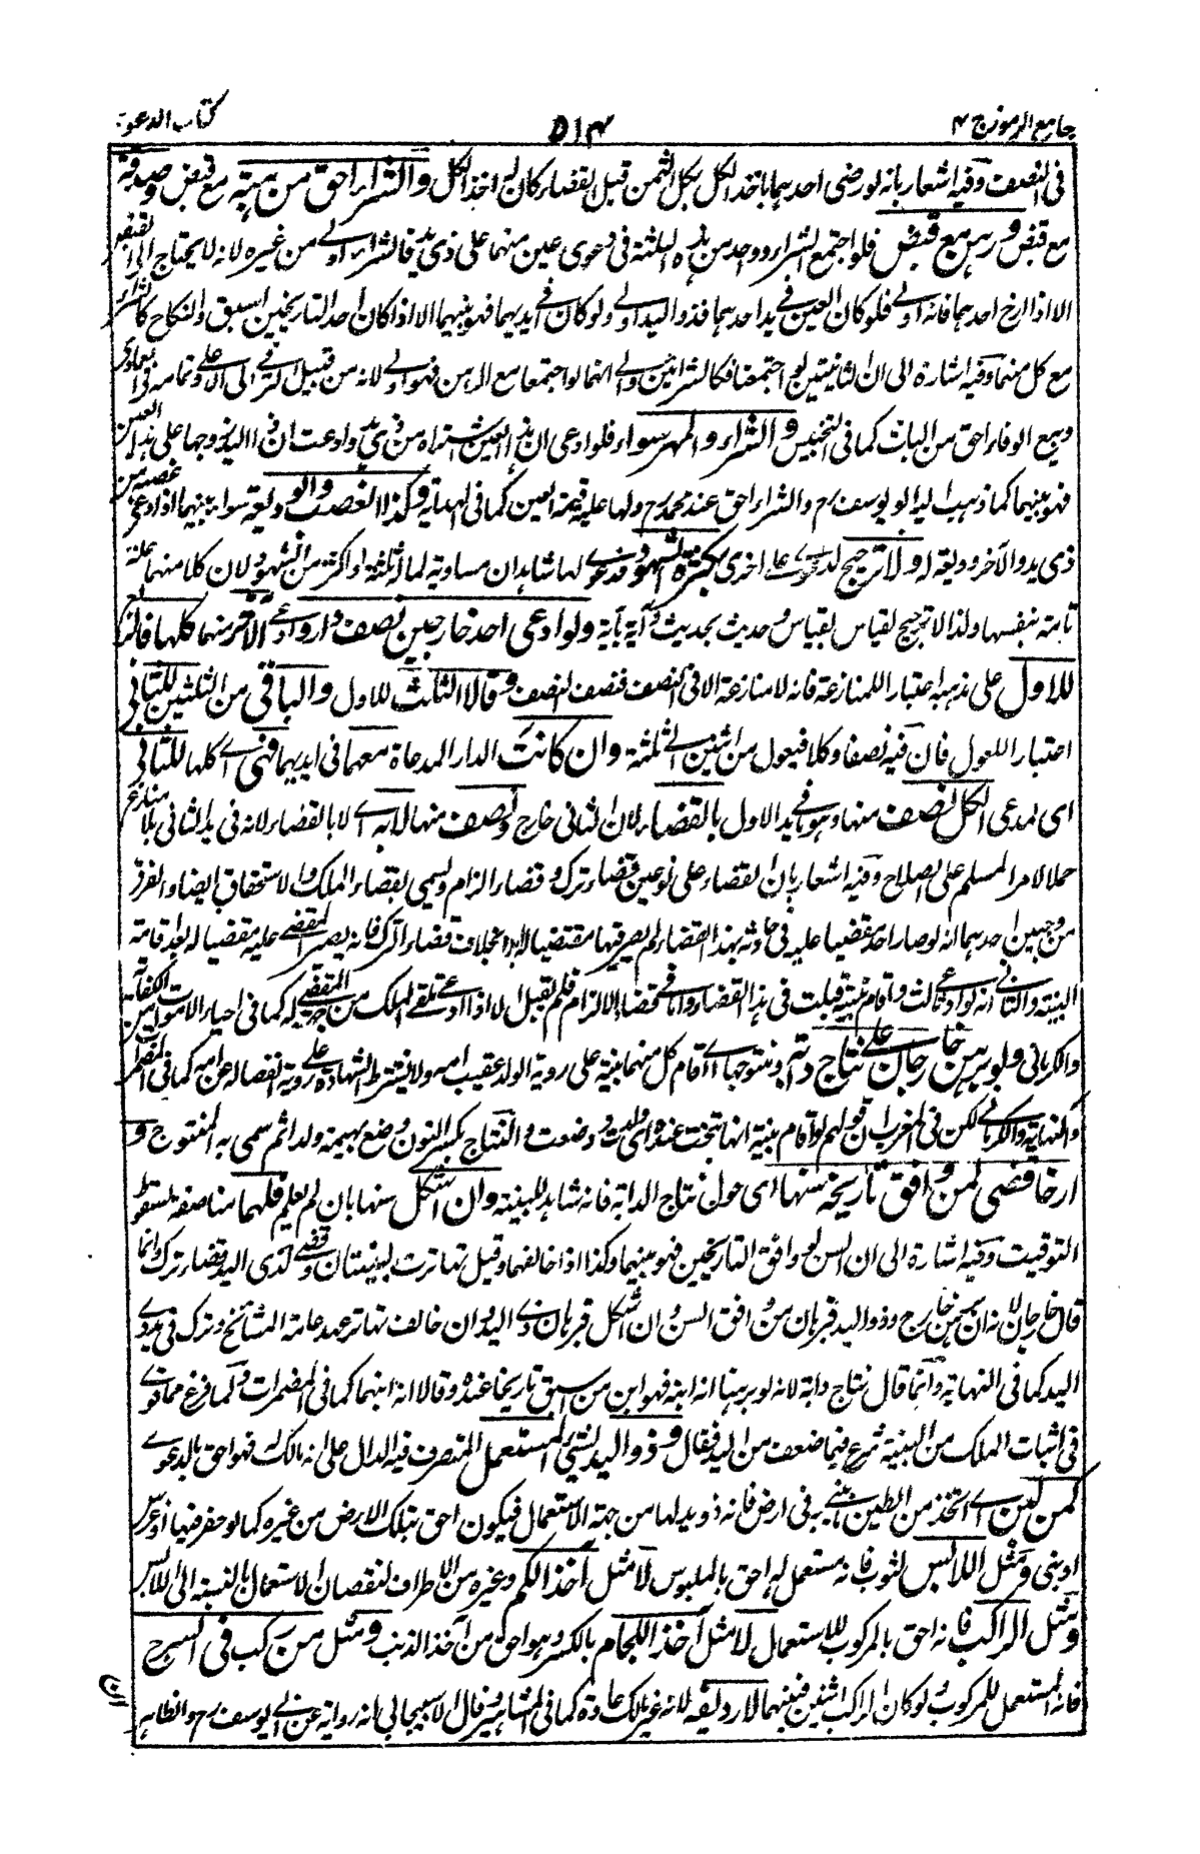 جامع الرموز ج ٢
٥١٣
كتاب الدعوى
فى النصف وفيه اشعار بانه لو رضى احدهما باخذ الكل بكل الثمن قبل القضاء كان له اخذ الكل والشراء احق من هبة مع قبض وصدقة
مع قبض ورهن مع قبض فلو اجتمع الشراء وواحد من هذه الثلثة فى دعوى عين منهما على ذى يد فالشراء اولى من غيره لانه لا يحتاج الى القبض
الا اذا ارخ احدهما فانه اولى فلو كان العين فى يد احدهما فذو اليد اولى ولو كان فى ايديهما فهو بينهما الا اذا كان احد التاريخين اسبق والنكاح كالشراء
مع كل منهما وفيه اشارة الى ان الثانيتين لو اجتمعتا فكالشرائين والى انهما لو اجتمعا مع الرهن فهو اولى لانه من قبيل الترقى الى الاعلى وتمامه فى العمادى
وبيع الوفاء احق من البات كما فى التجنيس والشراء والمهر سواء فلو ادعى ان هذا العين شراه من ذى يد وادعت ان ذا اليد تزوجها على هذا العين
فهو بينهما كما ذهب اليه ابو يوسف رح والشراء احق عند محمد رح ولها عليه قيمة العين كما فى الهداية وكذا الغصب والوديعة سواء بينهما اذا ادعى غصبه من
ذى يد والآخر وديعة له ولا ترجيح لدعوى على اخرى بكثرة الشهود فدعوى لها شاهدان مساوية لما له ثلثة او اكثر من الشهود لان كلا منهما علة
تامة بنفسها ولذا لا ترجيح لقياس بقياس وحديث بحديث وآية بآية ولو ادعى احد خارجين نصف دار وادعى الآخر منهما كلها فالربع
للاول على مذهبه اعتبارا للمنازعة فانه لا منازعة الا فى النصف فنصف النصف وقالا الثلث للاول والباقى من الثلثين للثانى
اعتبارا للعول فان فيه نصفا وكلا فيعول من اثنين الى ثلثة وان كانت الدار المدعاة معهما فى ايديهما فهى اى كلها للثانى
اى لمدعى الكل نصف منها وهو ما فى يد الاول بالقضاء لان الثانى خارج ونصف منها لا به اى لا بالقضاء لانه فى يد الثانى بلا منازع
حملا لامر المسلم على الصلاح وفيه اشعار بان القضاء على نوعين قضاء ترك وقضاء الزام ويسمى بقضاء الملك والاستحقاق ايضا والفرق
من وجهين احدهما انه لو صار احد مقضيا عليه فى حادثة بهذا القضاء لم يصر فيها مقتضيا له ابدا بخلاف قضاء الترك فانه يصير المقضى عليه مقضيا له بعد اقامة
البينة والثانى انه لو ادعى ثالث واقام بينة قبلت فى هذا القضاء واما فى قضاء الالزام فلم تقبل الا اذا ادعى تلقى الملك من جهة المقضى له كما فى احياء الاموات من الكفاية
والكرمانى ولو برهن خارجان على نتاج دابة ونتوجها اى اقام كل منهما بينة على رؤية الولد عقيب امه ولا يشترط الشهادة على رؤية انفصاله عن امه كما فى المضمرات
والنهاية والكرمانى لكن فى المغرب ان قولهم لو اقام بينة انها نتجت عنده اى ولدت ووضعت والنتاج بكسر النون وضع بهيمة ولدا ثم سمى به المنتوج و
ارخا قضى لمن وافق تاريخه سنها اى حول نتاج الدابة فانه شاهد للبينة وان اشكل سنها بان لم يعلم فلهما مناصفة لسقوط
التوقيت وفيه اشارة الى ان السن لو وافق التاريخين فهو بينهما وكذا اذا خالفهما وقيل تهاترت البينتان وقضى لذى اليد قضاء ترك وانما
قال خارجان لانه ان برهن خارج وذو اليد قبرهان من وافق السن وان اشكل قبرهان ذى اليد وان خالف تهاترا عند عامة المشائخ وترك فى يد ذى
اليد كما فى النهاية وانما قال نتاج دابة لانه لو برهنا انه ابنه فهو ابن من سبق تاريخا عنده وقالا انه ابنهما كما فى المضمرات وكما فرغ مما قوى
فى اثبات الملك من البينة شرع فيما ضعف من اليد فقال وذو اليد لشئ المستعمل المتصرف فيه الدال على انه مالكه فهو احق بالدعوى
كمن لبن اى اتخذ من الطين لبنه فى ارض فانه ذو يد لها من جهة الاستعمال فيكون احق بتلك الارض من غيره كما لو حفر فيها او غرس
او بنى ومثل اللابس لثوب فانه مستعمل له احق بالملبوس لا مثل آخذ الكم وغيره من الاطراف لنقصان الاستعمال بالنسبة الى اللابس
ومثل الراكب فانه احق بالمركوب للاستعمال لا مثل آخذ اللجام بالكسر وهو احق من آخذ الذنب ومثل من ركب فى السرج
فانه المستعمل للمركوب ولو كان الراكب اثنين فبينهما لا رديفه لانه غير مالك عادة كما فى المشاهير وقال الاسبيجابى انه رواية عن ابى يوسف رح والظاهر
ان